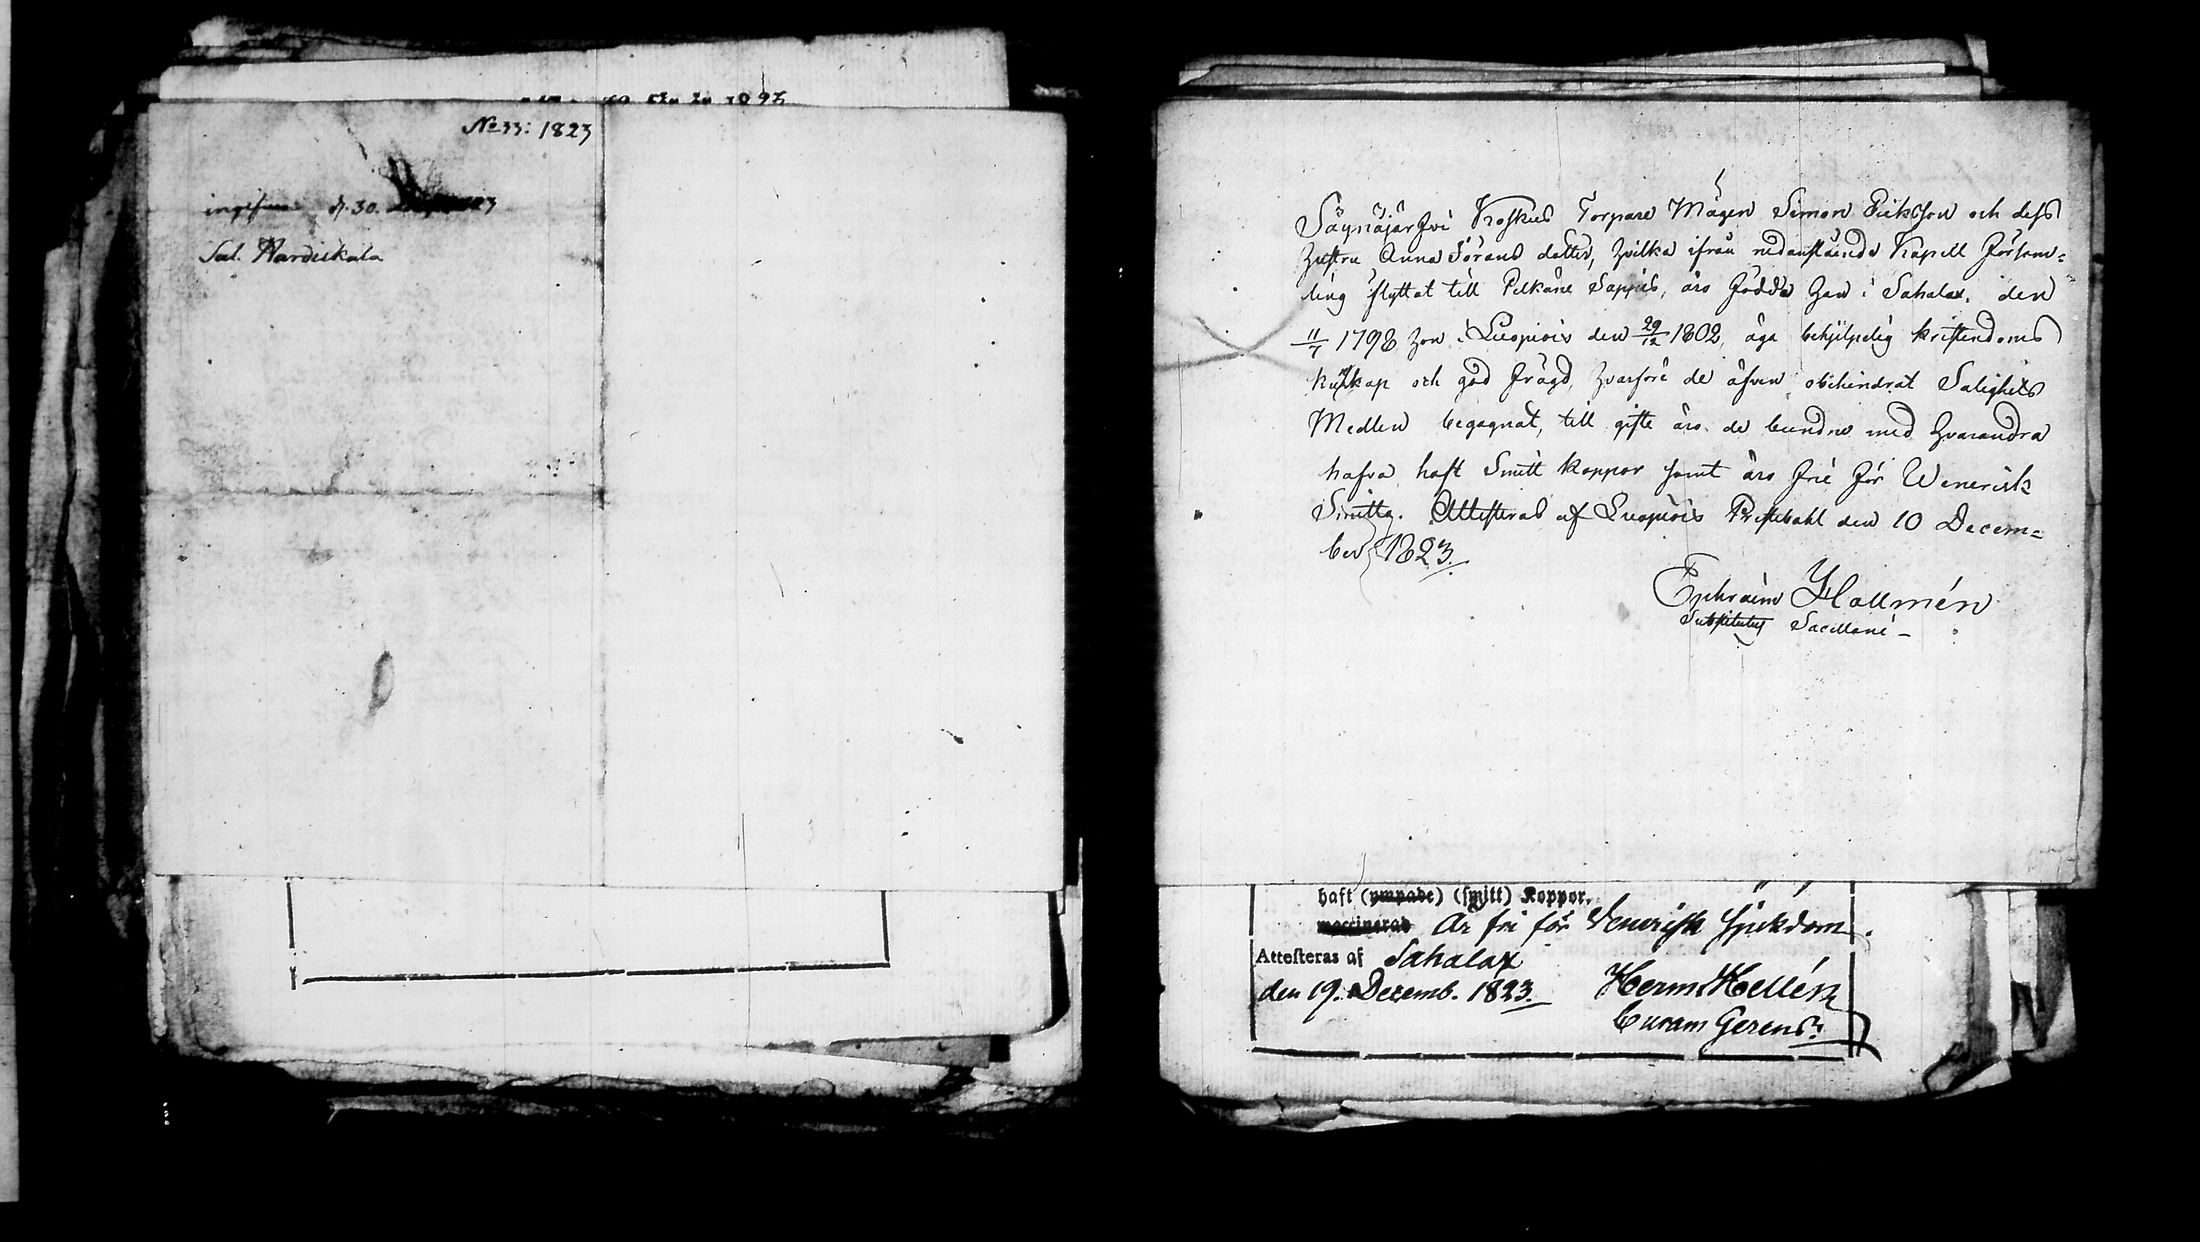 No 33: 1823
d. 30.
Sal. Hardiskala
Säynäjärfvi Koskus Torpare Mågen Simon Eriksson och dess
hustru Anna Görans dotter, hvilka ifrån nedanstående Kapell Församl=
ling flyttat till Pelkäne Sappis, äro födda han i Sahalax den
11/7 1798 hon i Luopiois den 29/12 1802, äga behjelpelig kristendoms
kunskap och god frägd, hvarföre de äfven obehindrat Salighets
Medlen begagnat, till gifte äro de bundne med hvarandra
hafva haft Smitt koppor samt äro frie för Wenerisk
Smitta. Attesteras af Luopiois Prestebohl den 10 Decem=
ber 1823.
Ephraim Hallmén
Substitutus Sacellani
haft (ympade) (smitt) Koppor.
vaccinerad Är fri för Venerisk sjukdom.
Attesteras af Sahalax
den 19. Decemb. 1823. Herm: Hellén
Curam Gerens.